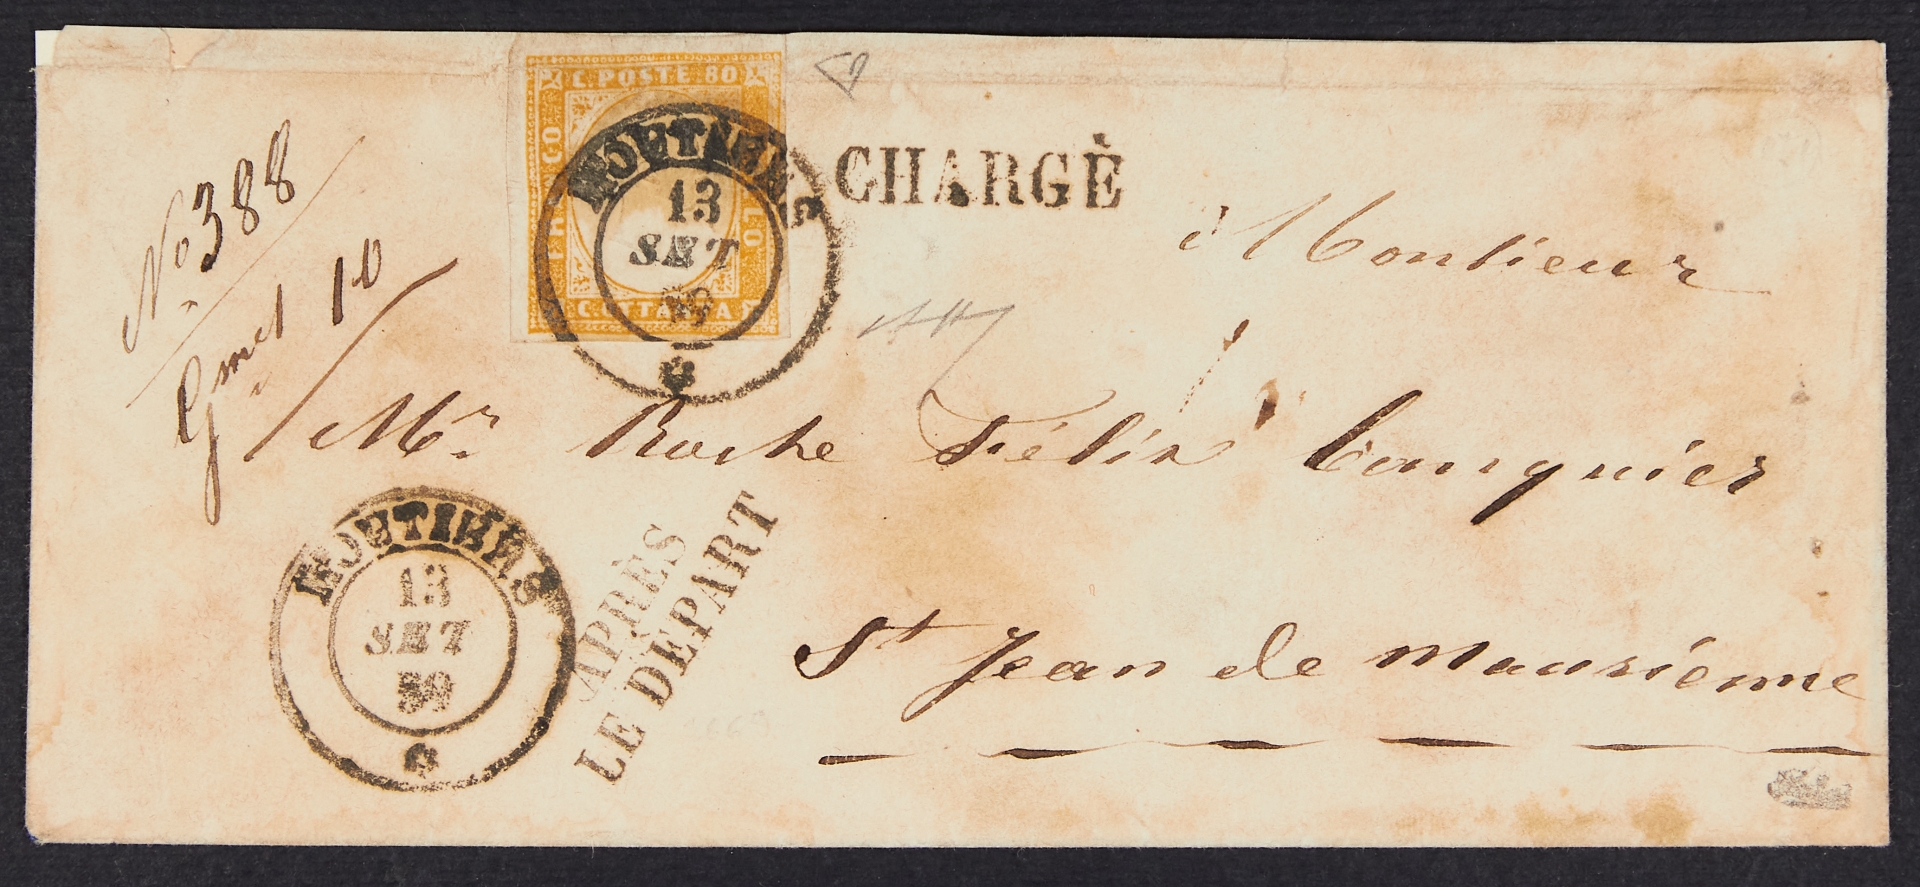 C. POSTE 80
FRANCO
BOLLO
C. OTTANTA
MOUTIERS
13
SET
59
CHARGÈ
No 388
10
Monsieur
Mr Roche Félix banquier
St Jean de Maurienne
MOUTIERS
13
SET
59
APRÈS
LE DÈPART